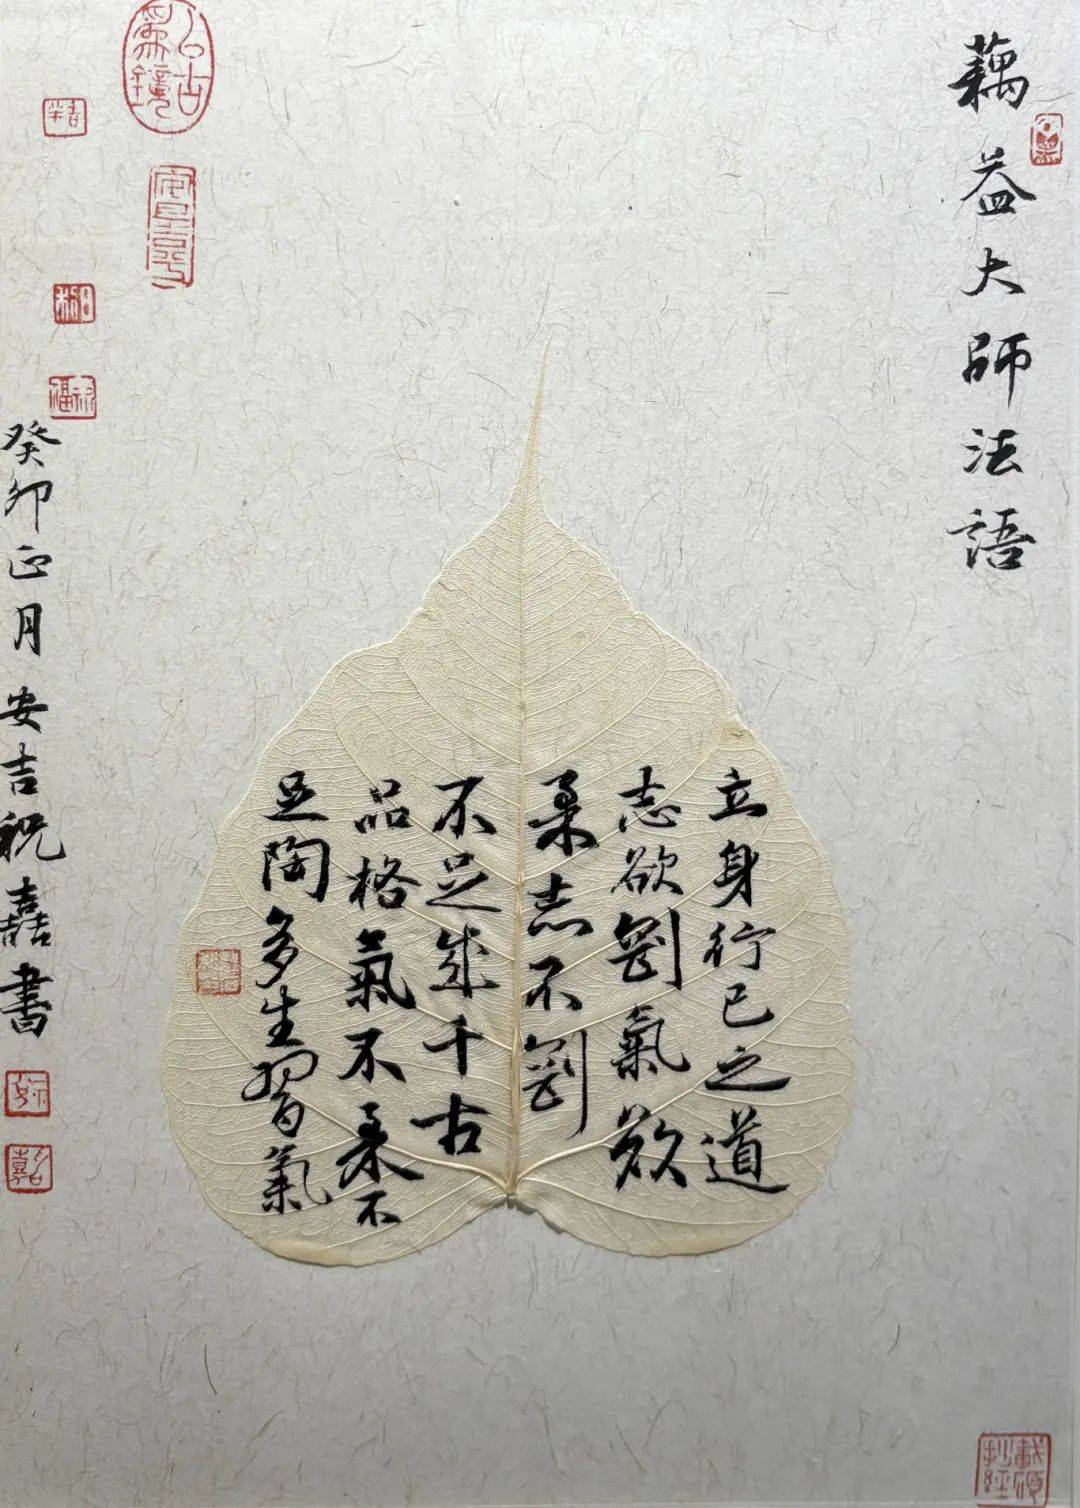 藕益大師法語
立身行己之道
志欲剛氣欲
柔志不剛
不足成千古
品格氣不柔不
足陶多生習氣
癸卯正月安吉祝嚞書
以古為鏡